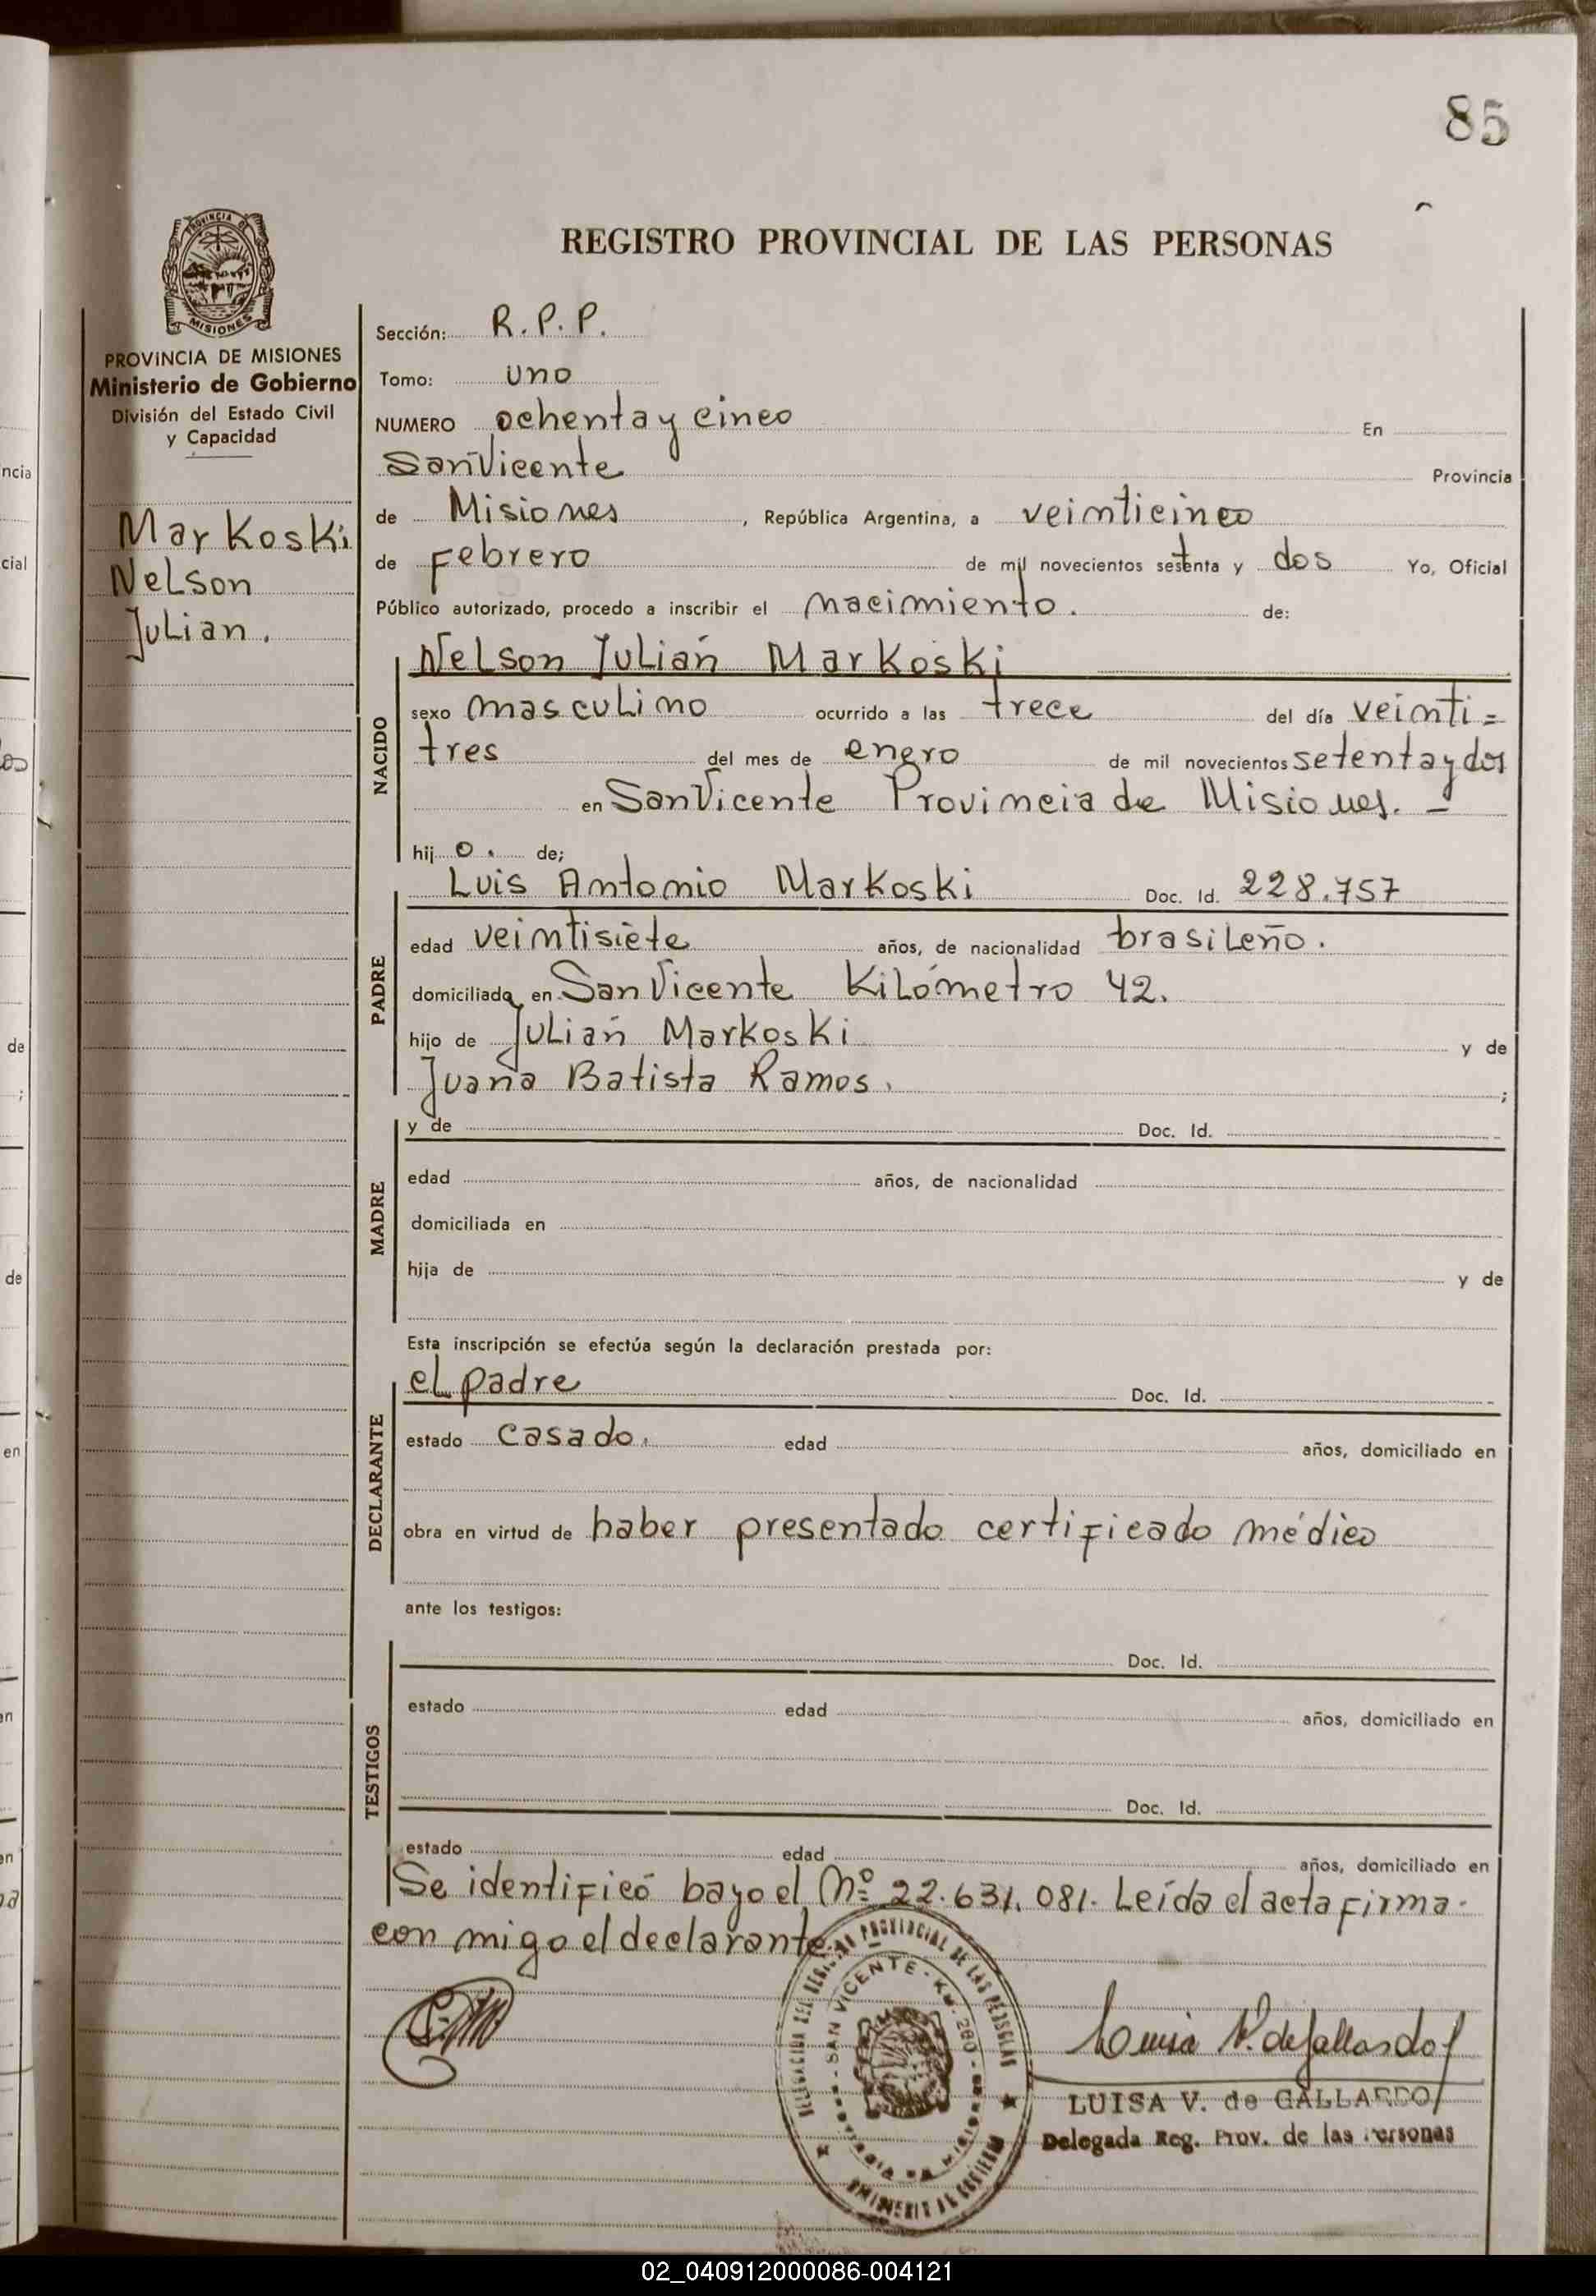 85
REGISTRO PROVINCIAL DE LAS PERSONAS
PROVINCIA DE
MISIONES
PROVINCIA DE MISIONES
Ministerio de Gobierno
División del Estado Civil
y Capacidad
Markoski
Nelson
Julian.
Sección: R.P.P.
Tomo: uno
NUMERO ochenta y cinco En
San Vicente Provincia
de Misiones, República Argentina, a veinticinco
de febrero de mil novecientos setenta y dos Yo, Oficial
Público autorizado, procedo a inscribir el nacimiento. de:
NACIDO
Nelson Julián Markoski
sexo masculino ocurrido a las trece del día veinti=
tres del mes de enero de mil novecientos setenta y dos
en San Vicente Provincia de Misiones. -
hijo. de;
PADRE
Luis Antonio Markoski Doc. Id. 228.757
edad veintisiete años, de nacionalidad brasileño.
domiciliado en San Vicente Kilómetro 42.
hijo de Julián Markoski y de
Juana Batista Ramos. ;
MADRE
y de Doc. Id.
edad años, de nacionalidad
domiciliada en
hija de y de
Esta inscripción se efectúa según la declaración prestada por:
DECLARANTE
el padre Doc. Id.
estado casado. edad años, domiciliado en
obra en virtud de haber presentado certificado médico
ante los testigos:
TESTIGOS
Doc. Id.
estado edad años, domiciliado en
Doc. Id.
estado edad años, domiciliado en
Se identificó bajo el Nº 22.631.081. Leída el acta firma
con migo el declarante
DELEGACION DEL REGISTRO PROVINCIAL DE LAS PERSONAS
SAN VICENTE - KM. 280 -
Luisa V. de Gallardo
LUISA V. de GALLARDO
Delegada Reg. Prov. de las Personas
ncia
cial
de
;
de
en
en
en
02_040912000086-004121